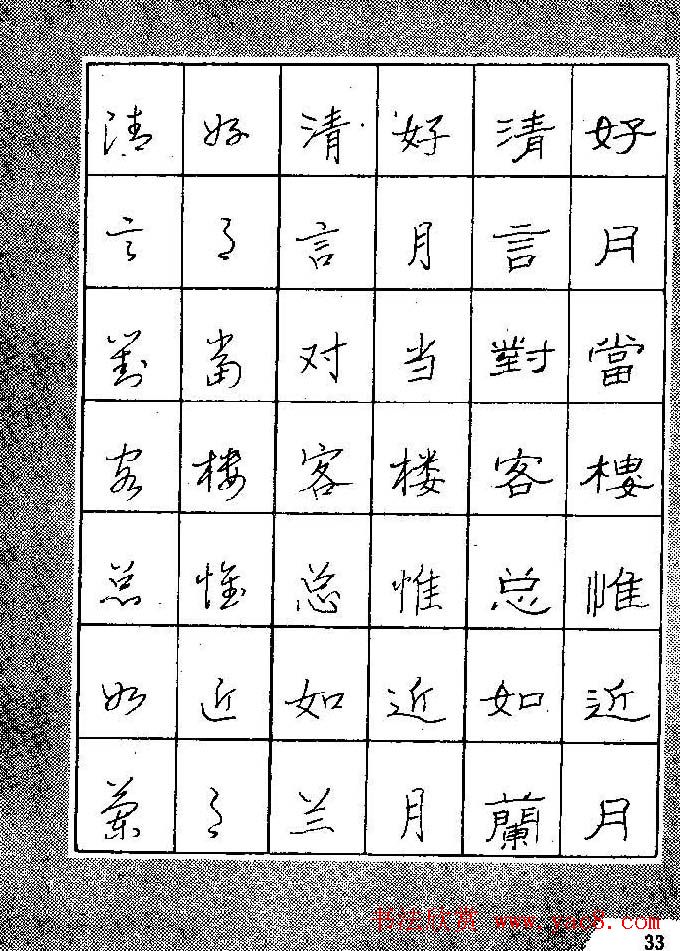 好月當樓惟近月
清言對客总如蘭
好月当楼惟近月
清言对客总如兰
好月當楼惟近月
清言對客总如蘭
书法欣赏 www.yac8.com
33